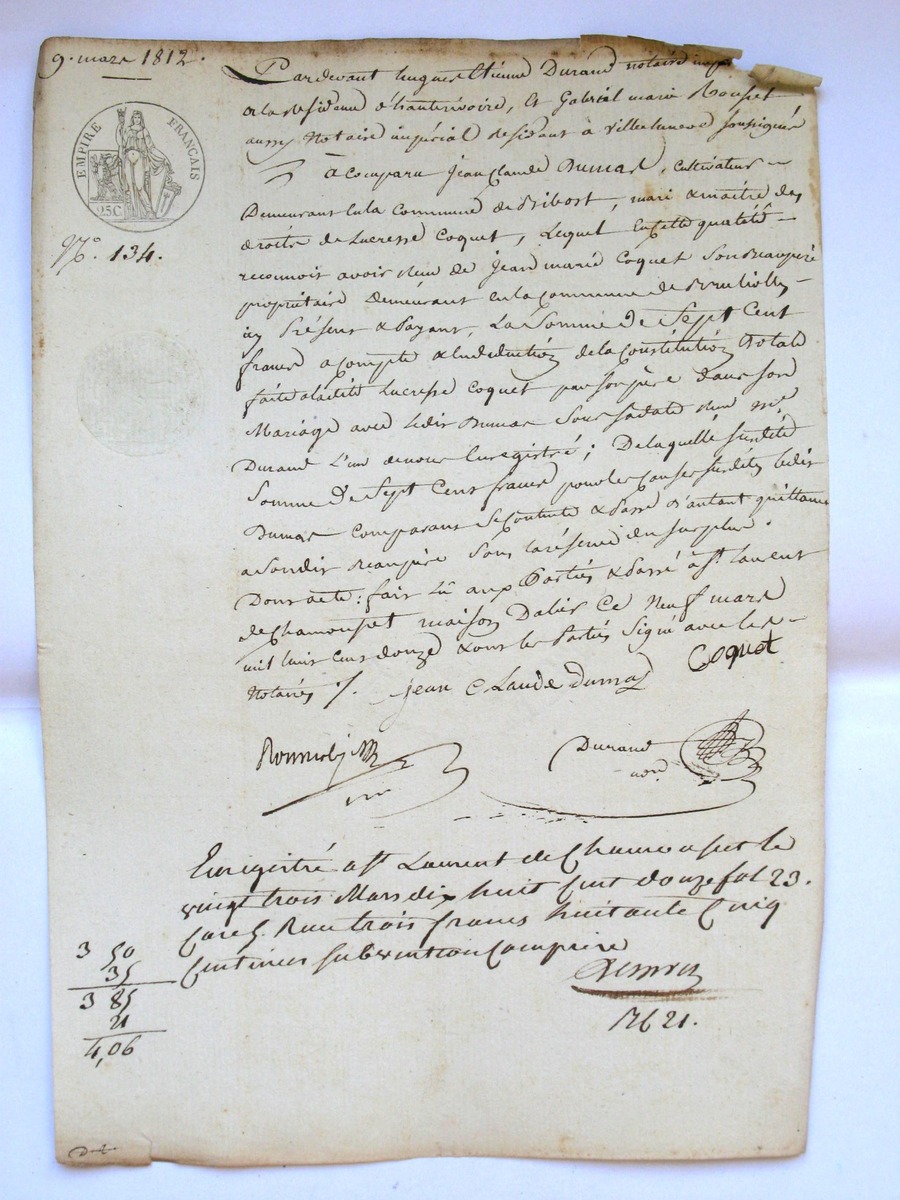 9. mars 1812.
EMPIRE FRANÇAIS
25C
N.° 134.
Pardevant hugues Etienne Durand notaire
a la residence d'hauterivoire, Et Gabriel marie Rousset
aussy Notaire impérial residant à Villechenève soussignés
à Comparu Jean Claude Dumas, cultivateur
Demeurant en la Commune de Bribost, mari & maitre des
droits de Lucresse Coquet, Lequel En cette qualité
reconnoit avoir reçu de Jean marie Coquet Son Beaupère
propriétaire Demeurant en la Commune de Brulliolles
icy Présent & Payant, La Somme de Sept Cent
francs acompte & en déduction de la Constitution totale
faite a ladite Lucresse Coquet par Son père dans son
Mariage avec ledit Dumas Sous sa date reçu me
Durand L'un de nous Enregistré; De laquelle susdite
Somme de Sept Cent francs pour les Causes susdites ledit
Dumas Comparant Se Contente & Passe d'autant quittance
a Sondit Beaupère Sous la réserve du Surplus.
Dont acte: fait Lû aux Parties & Passé à St. laurent
de Chamousset maison Dalier Ce Neuf mars
mil huit Cent douze & ont les Parties Signé avec les
Notaires /. Jean Claude Dumas Coquet
Durand
Enregistré a St Laurent de Chamousset le
vingt trois Mars dix huit Cent douze fol 23.
Reçu trois francs huitante Cinq
Centimes Subvention Comprise
3 50
35
3 85
21
4,06
R 621.